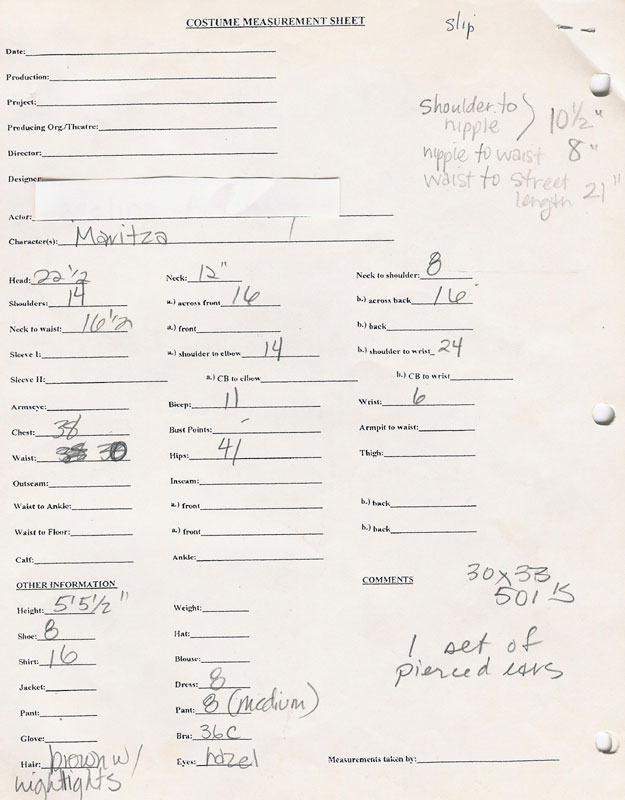 COSTUME MEASUREMENT SHEET
slip
Date:
Production:
Project:
Producing Org./Theatre:
Director:
Designer:
Actor:
Character(s): Maritza
shoulder to nipple } 10 1/2"
nipple to waist 8"
waist to street length 21"
Head: 22 1/2 Neck: 12" Neck to shoulder: 8
Shoulders: 14 a.) across front 16 b.) across back 16
Neck to waist: 16 1/2 a.) front b.) back
Sleeve I: a.) shoulder to elbow 14 b.) shoulder to wrist 24
Sleeve II: a.) CB to elbow b.) CB to wrist
Armseye: Bicep: 11 Wrist: 6
Chest: 38 Bust Points: - Armpit to waist:
Waist: 30 Hips: 41 Thigh:
Outseam: Inseam:
Waist to Ankle: a.) front b.) back
Waist to Floor: a.) front b.) back
Calf: Ankle:
OTHER INFORMATION COMMENTS 30x33
501's
Height: 5'5 1/2" Weight:
Shoe: 8 Hat: 1 set of
Shirt: 16 Blouse: pierced ears
Jacket: Dress: 8
Pant: Pant: 8 (medium)
Glove: Bra: 36C
Hair: brown w/ Eyes: hazel Measurements taken by:
highlights